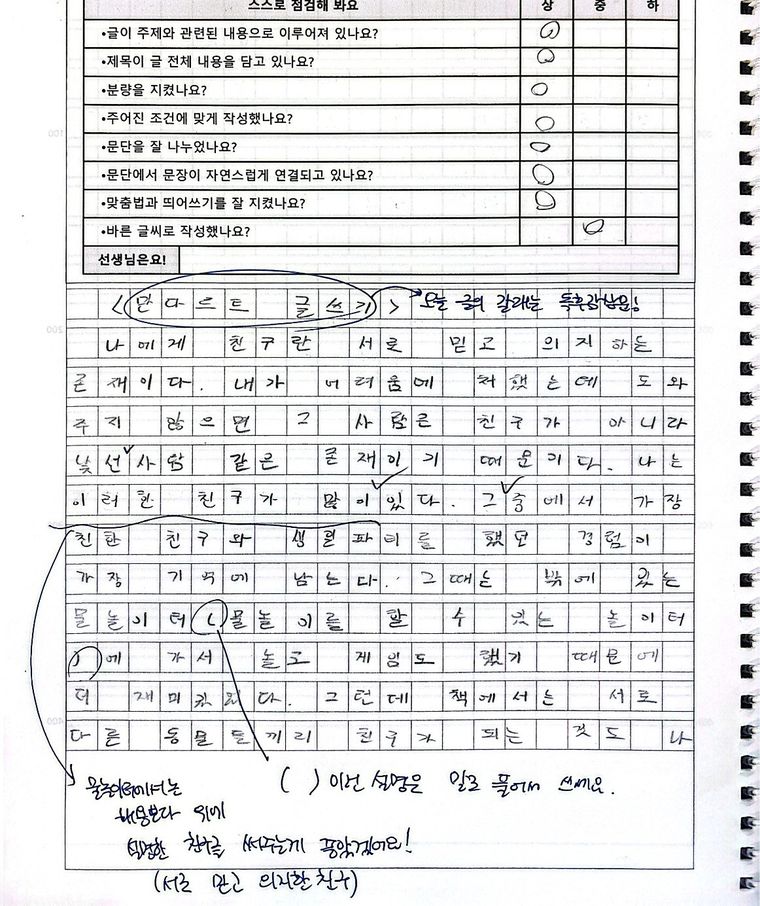 스스로 점검해 봐요 상 중 하
•글이 주제와 관련된 내용으로 이루어져 있나요?
•제목이 글 전체 내용을 담고 있나요?
•분량을 지켰나요?
•주어진 조건에 맞게 작성했나요?
•문단을 잘 나누었나요?
•문단에서 문장이 자연스럽게 연결되고 있나요?
•맞춤법과 띄어쓰기를 잘 지켰나요?
•바른 글씨로 작성했나요?
선생님은요!
<만다르트 글쓰기> 오늘 글의 갈래는 독후감님요!
나에게 친구란 서로 믿고 의지하는
존재이다. 내가 어려움에 처했는데 도와
주지 않으면 그 사람은 친구가 아니라
낯선사람 같은 존재이기 때문이다. 나는
이러한 친구가 많이있다. 그중에서 가장
친한 친구와 생일파티를 했던 경험이
가장 기억에 남는다. 그때는 밖에 있는
물놀이터(물놀이를 할 수 있는 놀이터
)에 가서 놀고 게임도 했기 때문에
더 재미있었다. 그런데 책에서는 서로
다른 동물들끼리 친구가 되는 것도 나
( ) 이런 설명은 말로 풀어서 쓰세요.
내용보다 위에
설명한 친구를 써주는게 좋았겠어요!
(서로 믿고 의지한 친구)